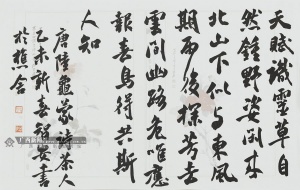 天賦識靈草自
然鍾野姿閒來
北山下似與東風
期雨後探芳去
雲間幽路危唯應
報春鳥得共斯
人知
唐陸龜蒙詩茶人
乙未新春伯安書
於蕉舍